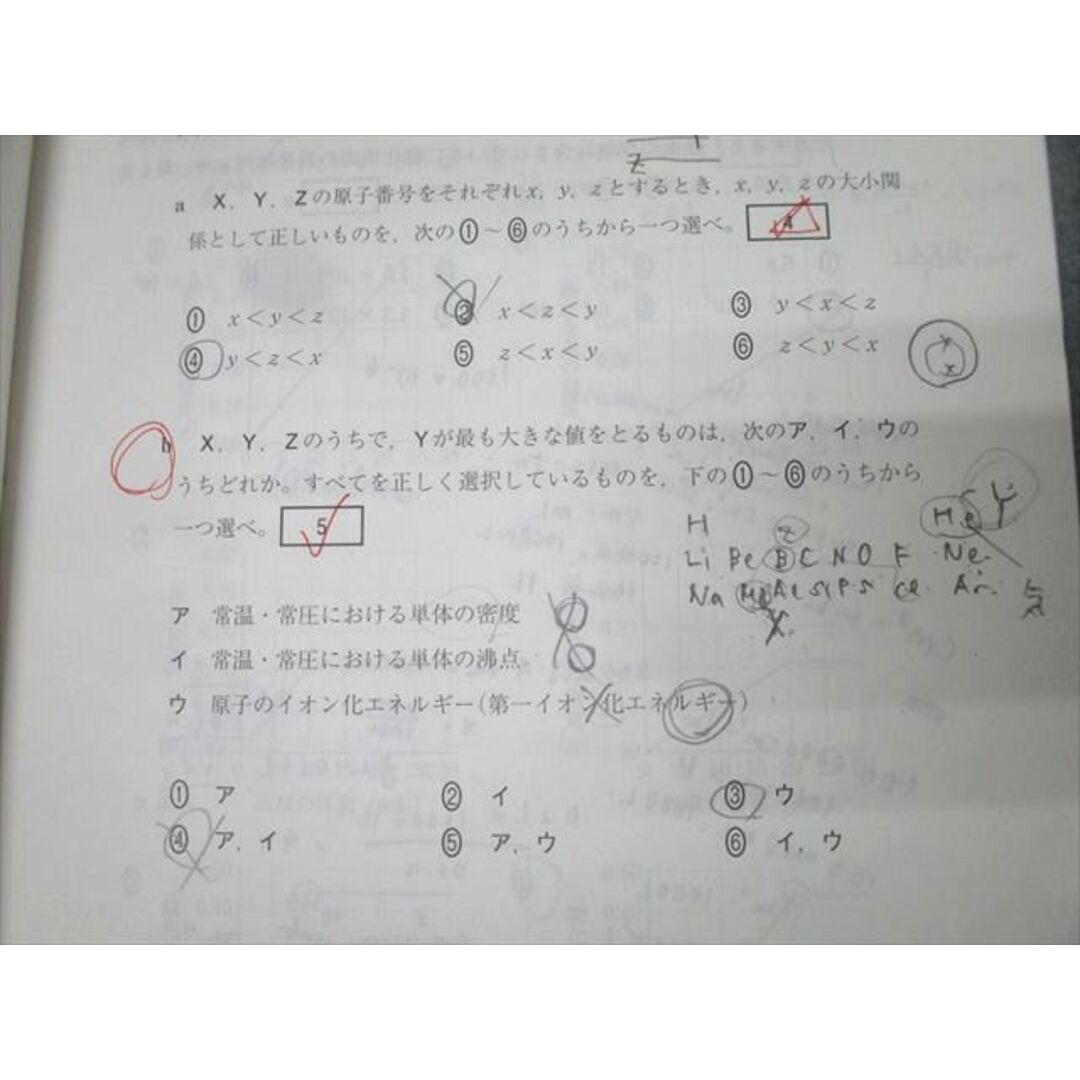 z
a X, Y, Zの原子番号をそれぞれx, y, zとするとき, x, y, zの大小関
係として正しいものを, 次の①～⑥のうちから一つ選べ。 4
① x＜y＜z ② x＜z＜y ③ y＜x＜z
④ y＜z＜x ⑤ z＜x＜y ⑥ z＜y＜x
Y
X
b X, Y, Zのうちで, Yが最も大きな値をとるものは, 次のア, イ, ウの
うちどれか。すべてを正しく選択しているものを, 下の①～⑥のうちから
一つ選べ。 5
H He Y
Z
Li Be B C N O F Ne
Na Mg Al Si P S Cl Ar
X
ア 常温・常圧における単体の密度
イ 常温・常圧における単体の沸点
ウ 原子のイオン化エネルギー(第一イオン化エネルギー)
① ア ② イ ③ ウ
④ ア, イ ⑤ ア, ウ ⑥ イ, ウ